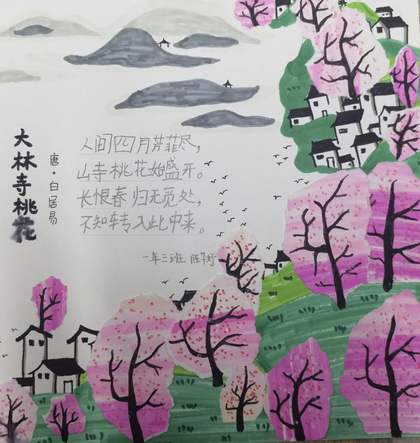 大林寺桃花
唐·白居易
人间四月芳菲尽，
山寺桃花始盛开。
长恨春归无觅处，
不知转入此中来。
一年二班